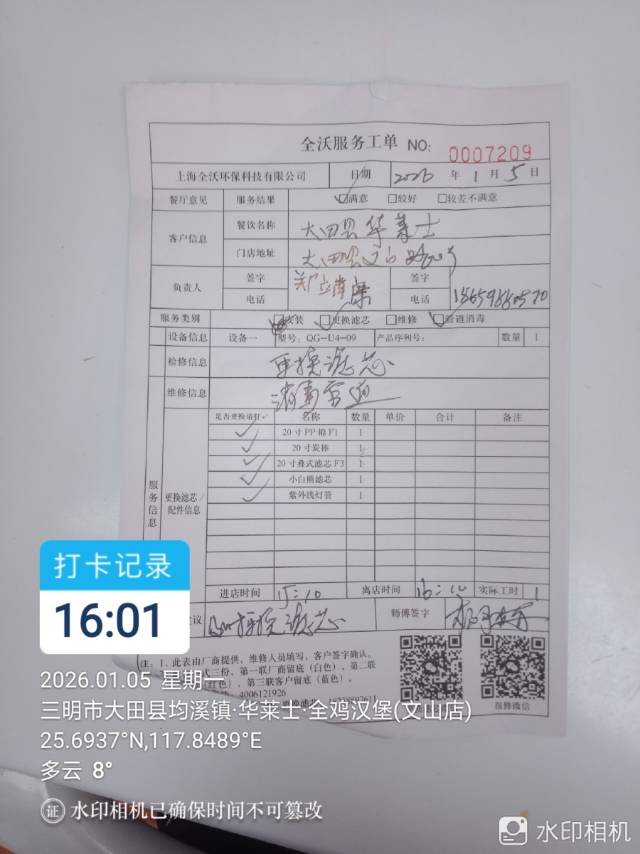 全沃服务工单 NO: 0007209
上海全沃环保科技有限公司 日期 2026 年 1 月 5 日
餐厅意见 服务结果 ☑满意 □较好 □较差不满意
客户信息 餐饮名称 大田县华莱士
门店地址 大田县文山路
负责人 签字 签字
电话 电话
服务类别 安装 ☑更换滤芯 □维修 ☑管道消毒
设备信息 设备一 型号: QG-U4-09 产品序列号: 数量 1
检修信息 更换滤芯
维修信息 消毒管道
服务信息 更换滤芯/配件信息
是否更换请打✓ 名称 数量 单价 合计 备注
✓ 20寸PP棉F1 1
✓ 20寸炭棒 1
✓ 20寸叠式滤芯F3 1
✓ 小白熊滤芯 1
✓ 紫外线灯管 1
进店时间 15:10 离店时间 16:10 实际工时 1
议 更换滤芯 师傅签字
注: 1、此表由厂商提供, 维修人员填写, 客户签字确认。
三份, 第一联厂商留底(白色), 第二联
红色), 第三联客户留底(蓝色)。
4006121926
报修微信
打卡记录
16:01
2026.01.05 星期一
三明市大田县均溪镇·华莱士·全鸡汉堡(文山店)
25.6937°N,117.8489°E
多云 8°
证 水印相机已确保时间不可篡改
水印相机